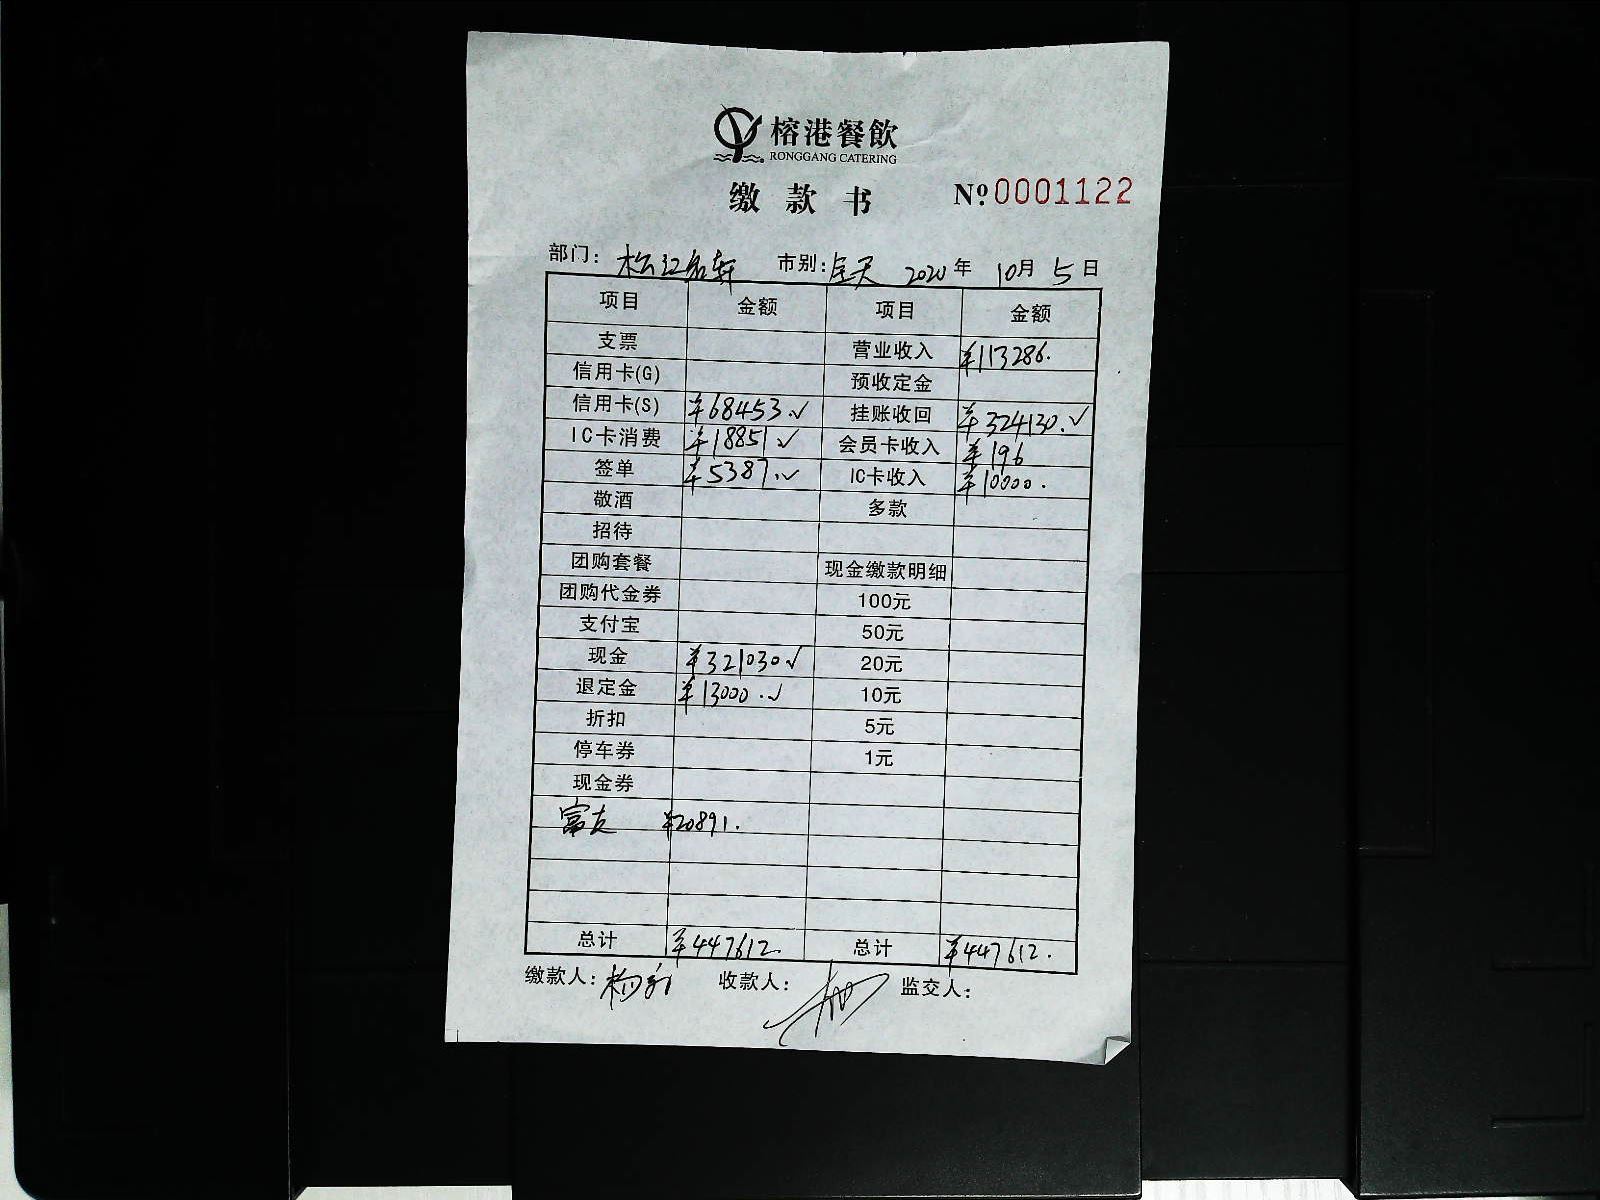 榕港餐飲
RONGGANG CATERING
缴款书 №0001122
部门: 松江名轩 市别: 全天 2020年 10月 5日
项目 金额 项目 金额
支票 营业收入 ¥113286.
信用卡(G) 预收定金
信用卡(S) ¥68453.✓ 挂账收回 ¥324130.✓
IC卡消费 ¥18851✓ 会员卡收入 ¥196
签单 ¥5387.✓ IC卡收入 ¥10000.
敬酒 多款
招待
团购套餐 现金缴款明细
团购代金券 100元
支付宝 50元
现金 ¥321030✓ 20元
退定金 ¥13000.✓ 10元
折扣 5元
停车券 1元
现金券
富友 ¥20891.
总计 ¥447612. 总计 ¥447612.
缴款人: 收款人: 监交人: